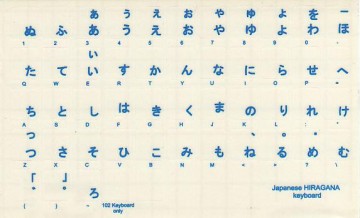 ぁ ぅ ぇ ぉ ゃ ゅ ょ を ー
ぬ ふ あ う え お や ゆ よ わ ほ
1 2 3 4 5 6 7 8 9 0 -
ぃ
た て い す か ん な に ら せ へ
Q W E R T Y U I O P
ち と し は き く ま の り れ け
A S D F G H J K L
っ 、 。
つ さ そ ひ こ み も ね る め む
Z X C V B N M < >
「 」
゛ ゜ ろ
102 Keyboard
only
Japanese HIRAGANA
keyboard